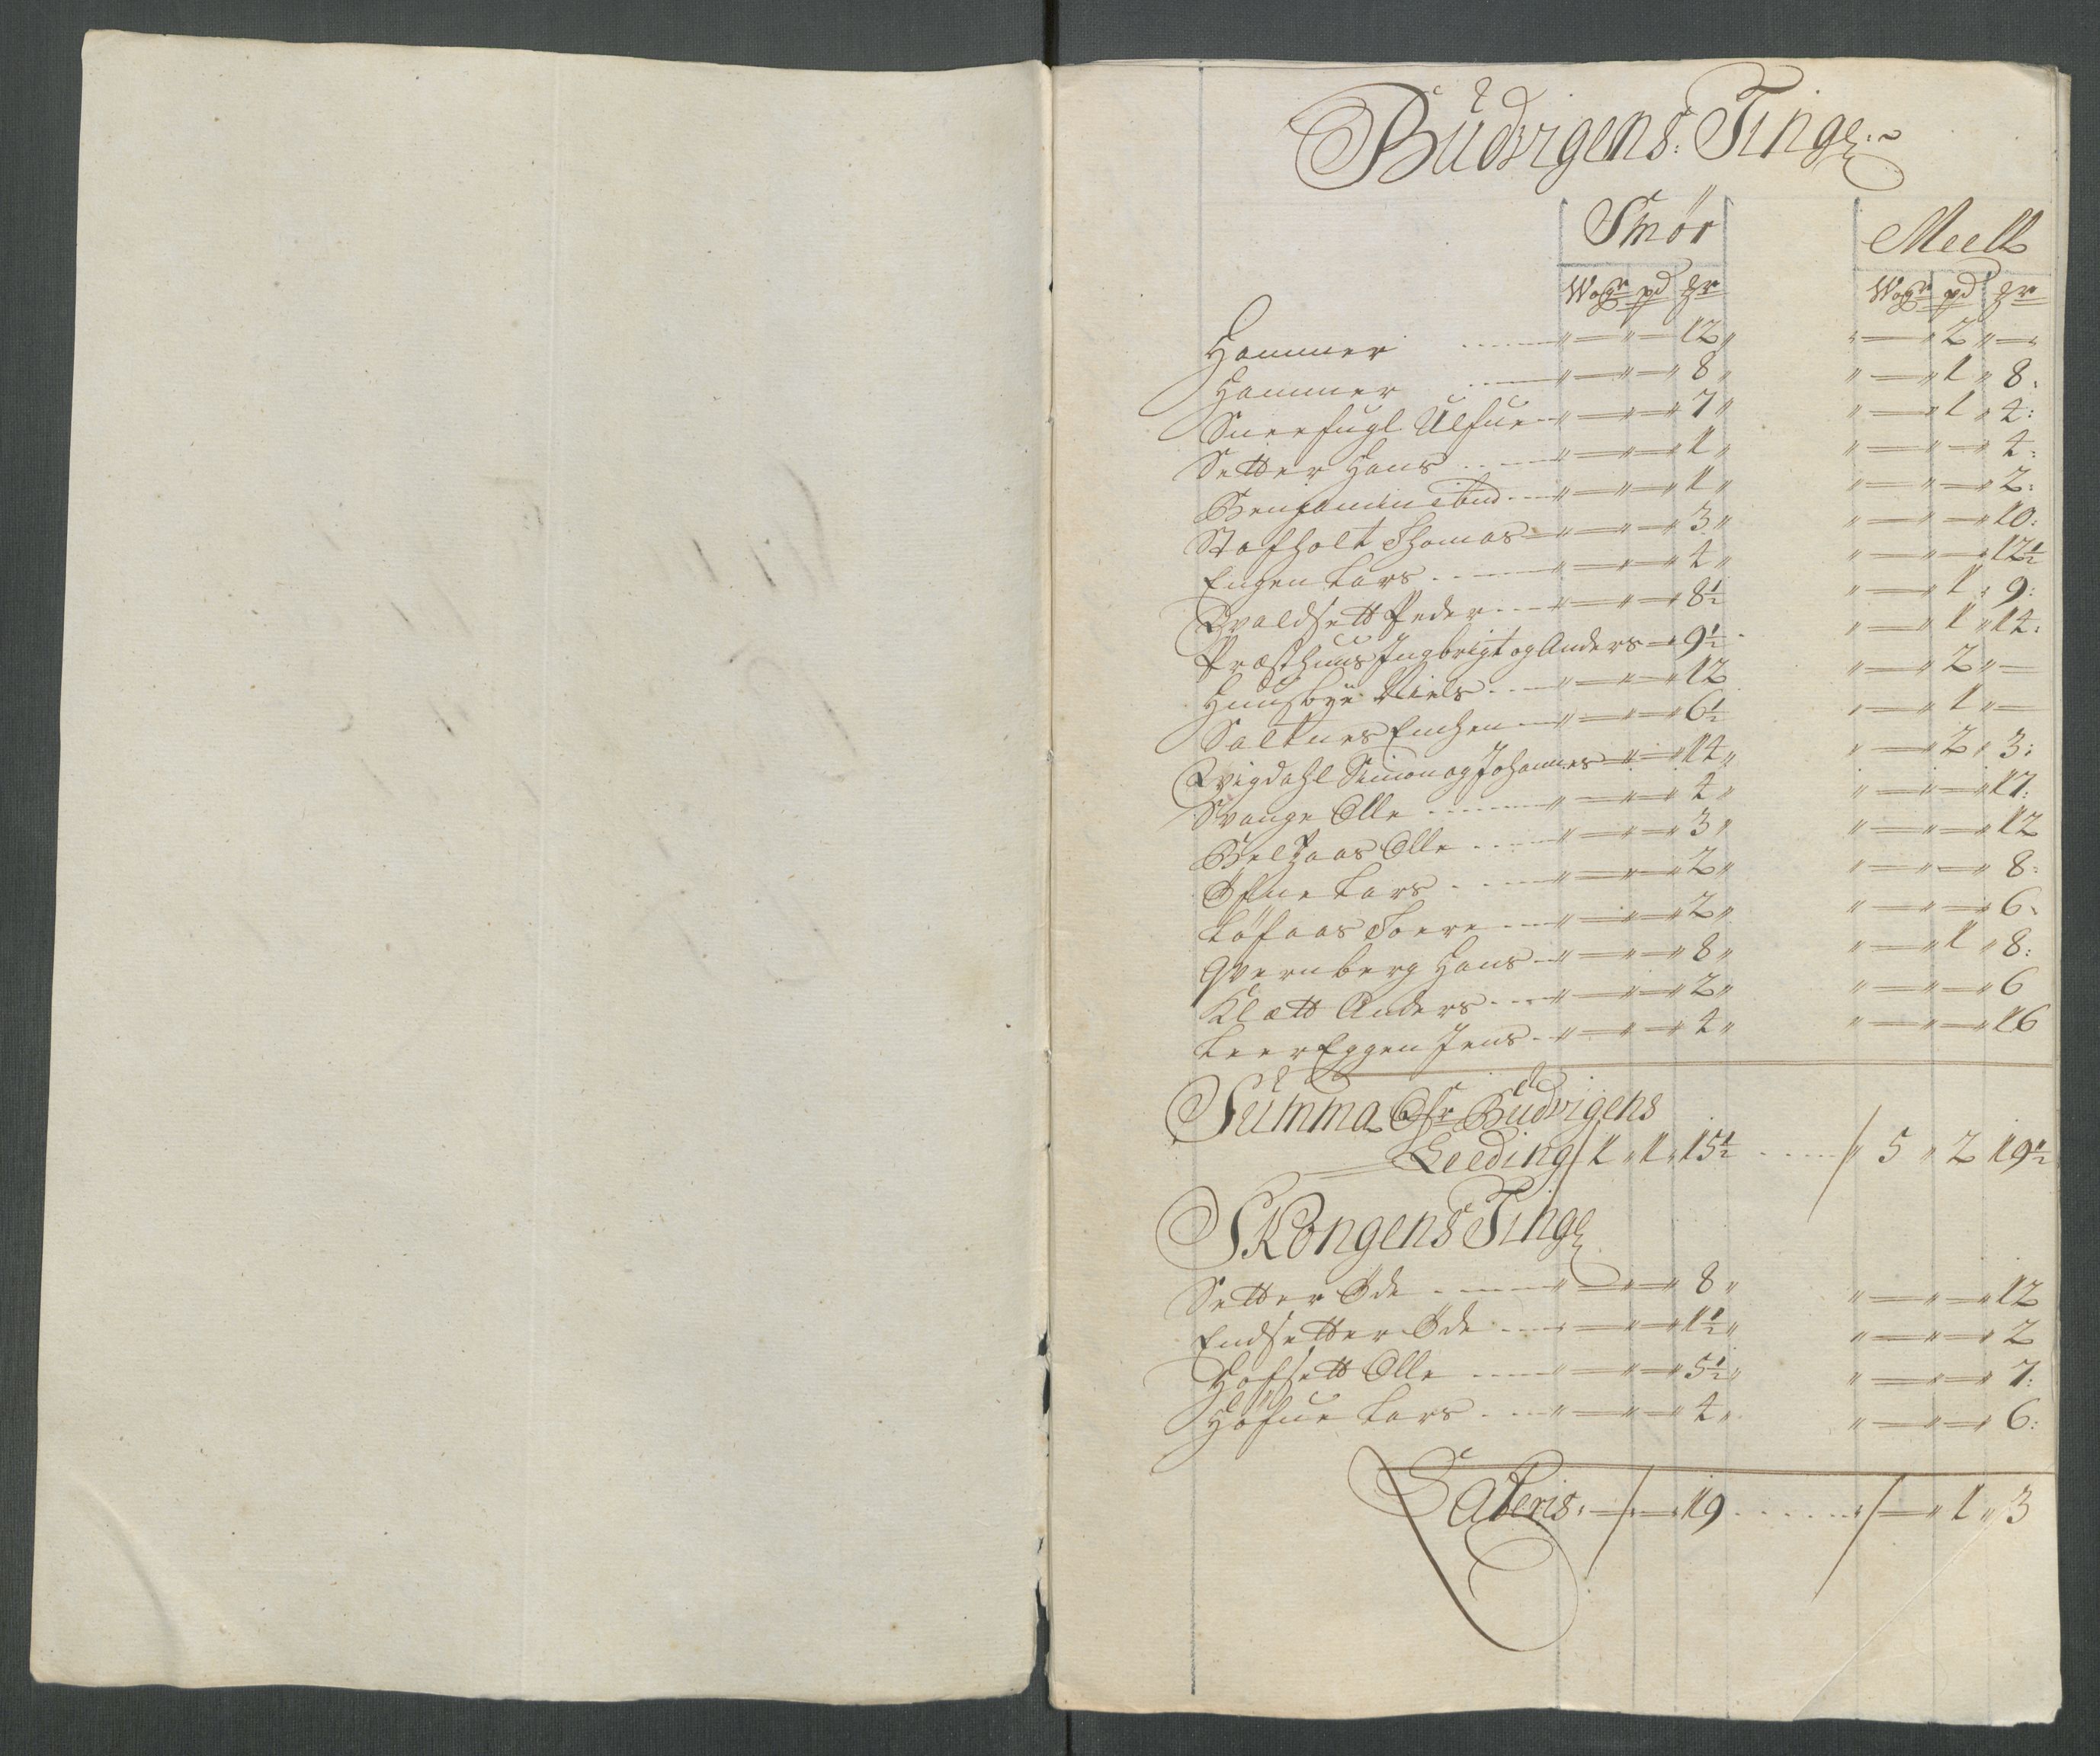 Büdvigens: Ting:~
Smör Meell
Wogr pd gr Wogr pd gr
Hammer ..... " — " — 12 " " — " 2 " — "
Hammer .... " — " — " 8 " " — " 1 " 8 :
Sneefugl Ulfue — " — " — " 7 " " — " 1 " 4 :
Setter Hans .... " — " — " 1 " " — " — " 4 :
Benjamin ibm .... " — " — " 1 " " — " — " 2 :
Stafholt Thomas — " — " — " 3 " " — " — " 10 :
Engen Lars ..... " — " — " 4 " " — " — " 12½
Qvaldsett Peder .... " — " — " 8½ " — " 1 " 9 :
Præsthuus Ingbrigt og Anders — " 9½ " — " 1 " 14 :
Huusbye Niels .... " — " — " 12 " — " 2 " —
Saltnes Enchen — " — " — " 6½ " — " 1 " —
Qvigdahl Simon og Johannes — " — " 14 " " — " 2 " 3 :
Svange Olle ...... " — " — " 4 " " — " — " 17 :
Belsaas Olle ..... " — " — " 3 " " — " — " 12
Öfue Lars ..... " — " — " 2 " " — " — " 8 :
Löfaas Toere .... " — " — " 2 " " — " — " 6 :
Qvernberg Hans — " — " — " 8 " " — " 1 " 8 :
Klett Anders .... " — " — " 2 " " — " — " 6
Leer Eggen Jens .. " — " — " 4 " " — " — " 16
Summa Ofr Büdvigens
Leeding / 1 " 1 " 15½ ..... / " 5 " 2 19½
Skongens Ting
Setter Öde ..... " — " — " 8 " " — " — " 12
Endsetter Öde .... " — " — " 1½ " " — " — " 2
Hofsett Olle ..... " — " — " 5½ " " — " — " 7 :
Höfue Lars .... " — " — " 4 " " — " — " 6 :
Lateris : — / — " 19 ....... " / — " 1 " 3